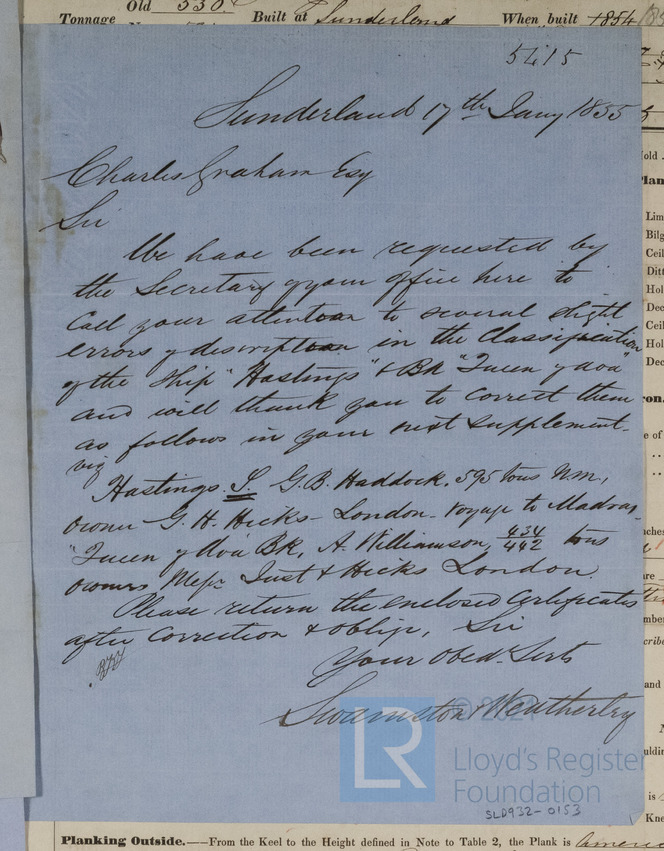 Tonnage Old 330 Built at Sunderland When built 1854
5415
Sunderland 17th Jany 1855
Charles Graham Esq
Sir
We have been requested by
the Secretary of your office here to
Call your attention to several slight
errors of description in the Classification
of the Ship "Hastings" & Bk "Queen of Ava"
and will thank you to correct them
as follows in your next supplement.
viz
Hastings. S. G.B. Haddock. 595 tons N.M.
owner G. H. Hicks - London - Voyage to Madras.
"Queen of Ava Bk, A. Williamson, 434/442 tons
owners, Messrs Just & Hicks London.
Please return the enclosed Certificates
after Correction & oblige, Sir
Your Obed. Serts
Swainston & Weatherley
LR
© 2021
Lloyd's Register
Foundation
SLD932-0153
Planking Outside.—From the Keel to the Height defined in Note to Table 2, the Plank is